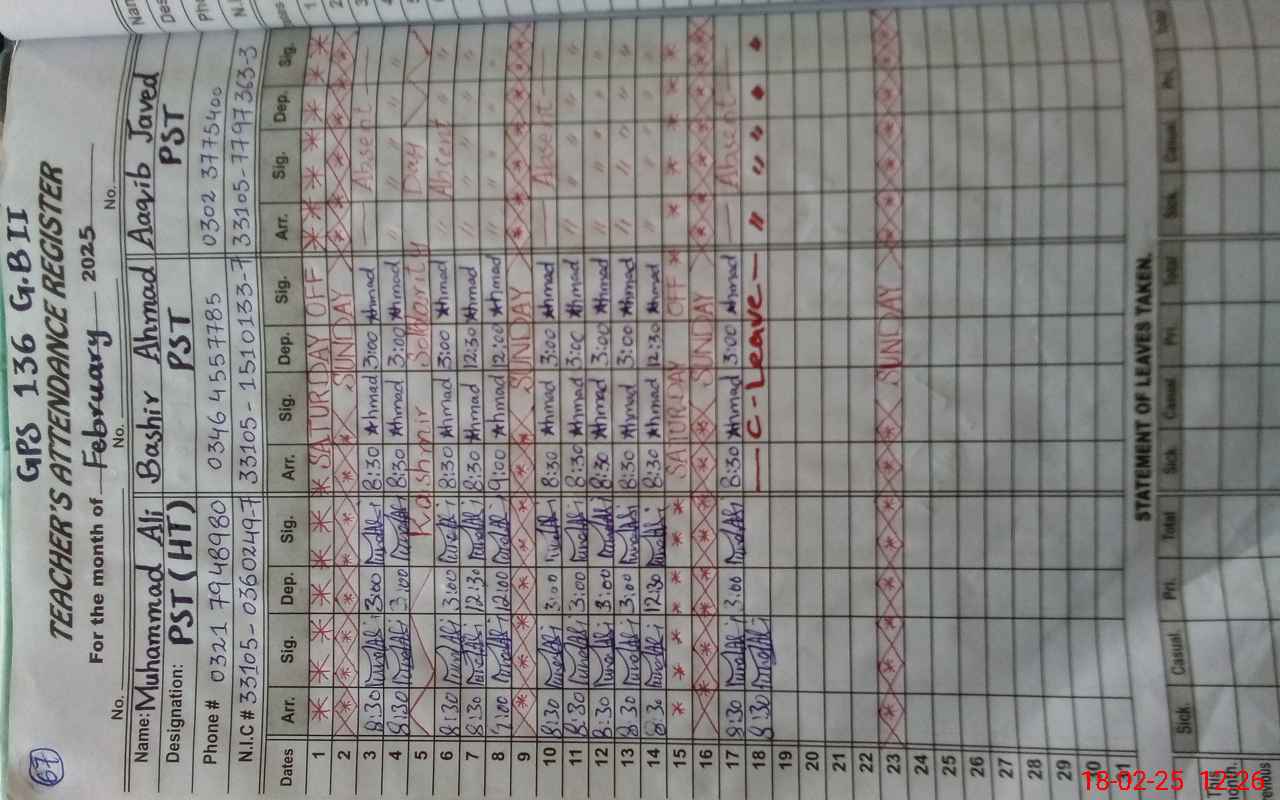 67
GPS 136 G.B II
TEACHER'S ATTENDANCE REGISTER
For the month of February 2025
No. No. No.
Name: Muhammad Ali Bashir Ahmad Aaqib Javed
Designation: PST (HT) PST PST
Phone # 0321 7948980 0346 4557785 0302 3775400
N.I.C # 33105-0360249-7 33105-1510133-7 33105-7797363-3
Dates Arr. Sig. Dep. Sig. Arr. Sig. Dep. Sig. Arr. Sig. Dep. Sig.
1 SATURDAY OFF
2 SUNDAY
3 8:30 3:00 8:30 Ahmad 3:00 Ahmad Absent
4 8:30 3:00 8:30 Ahmad 3:00 Ahmad " " " "
5 Kashmir Solidority Day
6 8:30 3:00 8:30 Ahmad 3:00 Ahmad " Absent " "
7 8:30 12:30 8:30 Ahmad 12:30 Ahmad " " " "
8 9:00 12:00 9:00 Ahmad 12:00 Ahmad " " " "
9 SUNDAY
10 8:30 3:00 8:30 Ahmad 3:00 Ahmad Absent
11 8:30 3:00 8:30 Ahmad 3:00 Ahmad " " " "
12 8:30 3:00 8:30 Ahmad 3:00 Ahmad " " " "
13 8:30 3:00 8:30 Ahmad 3:00 Ahmad " " " "
14 8:30 12:30 8:30 Ahmad 12:30 Ahmad " " " "
15 SATURDAY OFF
16 SUNDAY
17 8:30 3:00 8:30 Ahmad 3:00 Ahmad Absent
18 8:30 C-Leave " " "
19
20
21
22
23 SUNDAY
24
25
26
27
28
29
30
31
STATEMENT OF LEAVES TAKEN.
Sick. Casual. Pri. Total Sick. Casual Pri. Total Sick. Casual Pri. Total
This month.
Previous
18-02-25 12:26